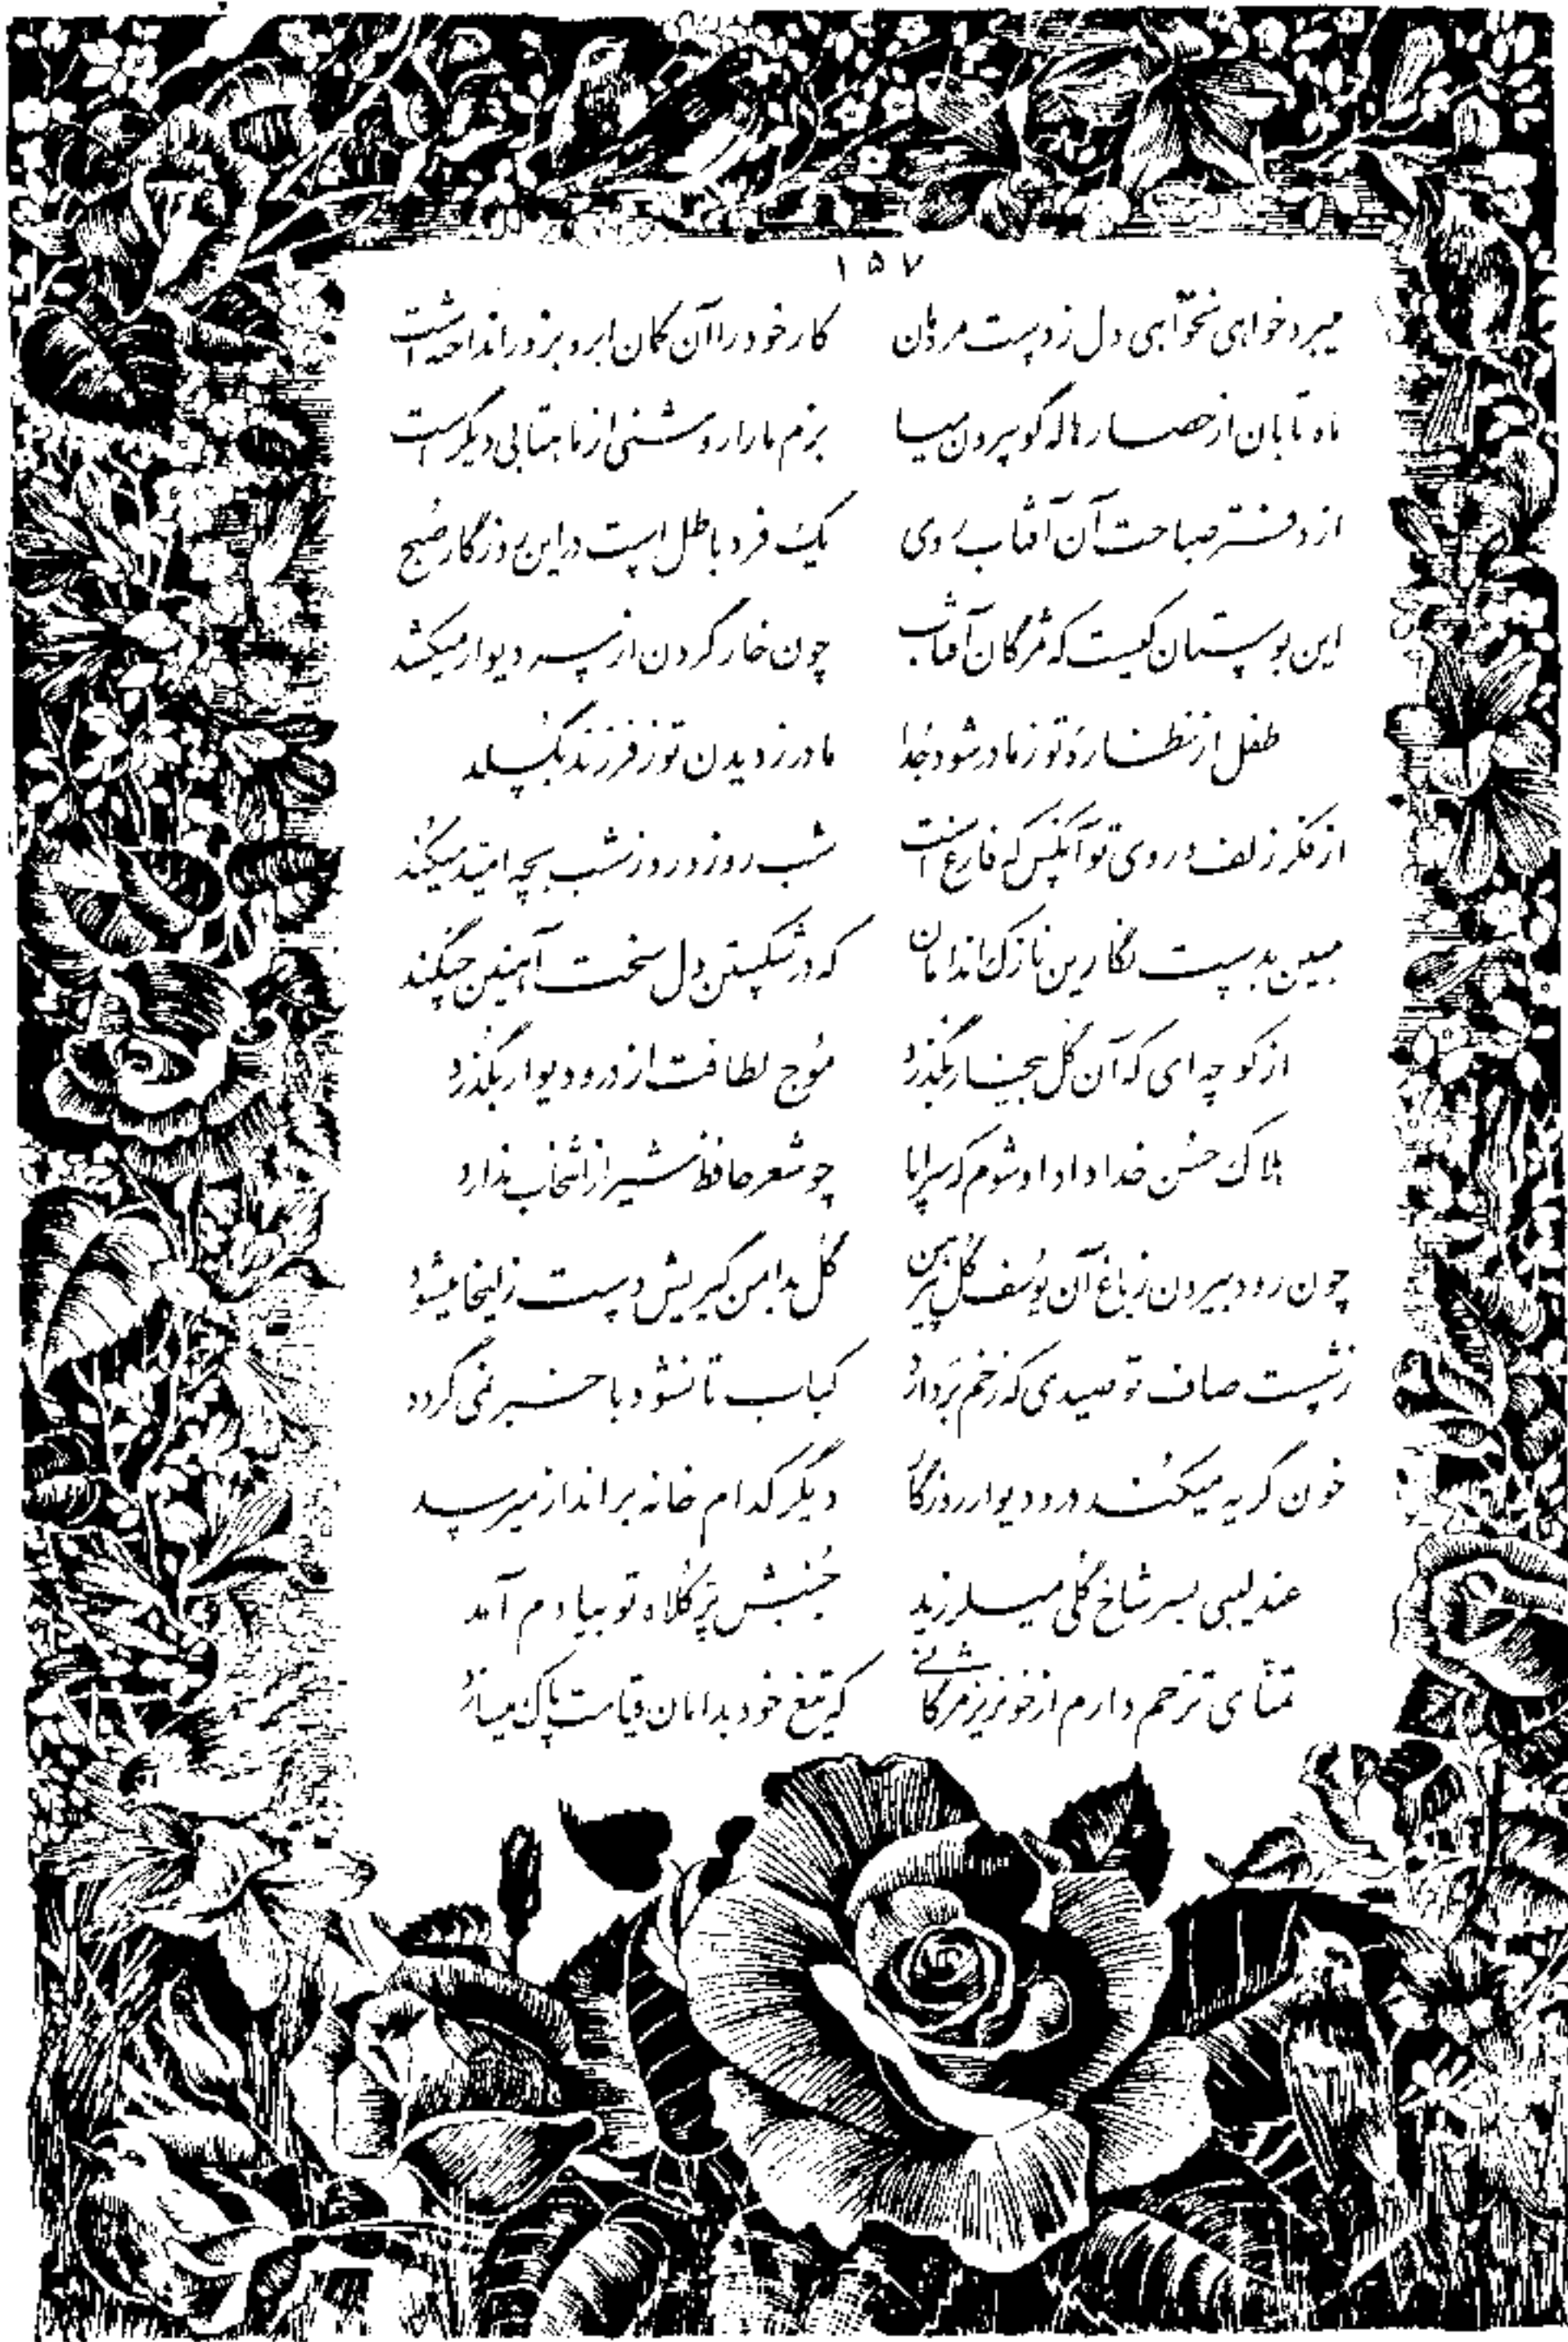 ۱۵۷
میبرد خواهی نخواهی دل ز دست مردمان کار خود را آن کمان ابرو بزور انداخته است
ماه تابان از حصار هاله گو بیرون میا بزم ما را روشنی از ماهتابی دیگر است
از دفتر صباحت آن آفتاب روی یک فرد باطل است در این روزگار صبح
این بوستان کیست که مژگان آفتاب چون خار گردن از سر دیوار میکشد
طفل از نظاره تو ز مادر شود جُدا مادر ز دیدن تو ز فرزند بگسلد
از فکر زلف و روی تو آنکس که فارغ است شب روز و روز شب بچه امّید میکُند
مبین بدست نگارین نازک اندامان که در شکستن دل سخت آهنین چنگند
از کوچه ای که آن گل بیخار بگذرد مُوج لطافت از در و دیوار بگذرد
هلاک حُسن خداداد او شوم که سراپا چو شعر حافظ شیراز انتخاب ندارد
چون رود بیرون ز باغ آن یُوسف گل پیرهن گل بدامن گیریش دست زلیخا میشود
ز شست صاف تو صیدی که زخم بَردارد کباب تا نشود با خبر نمی گردد
خون گریه میکُند در و دیوار روزگار دیگر کدام خانه برانداز میرسد
عندلیبی بسر شاخ گلی میلرزید جُنبش پَر کُلاه تو بیادم آمد
تمنّای ترحم دارم از خونریز مژگانی که تیغ خود بدامان قیامت پاک میسازد